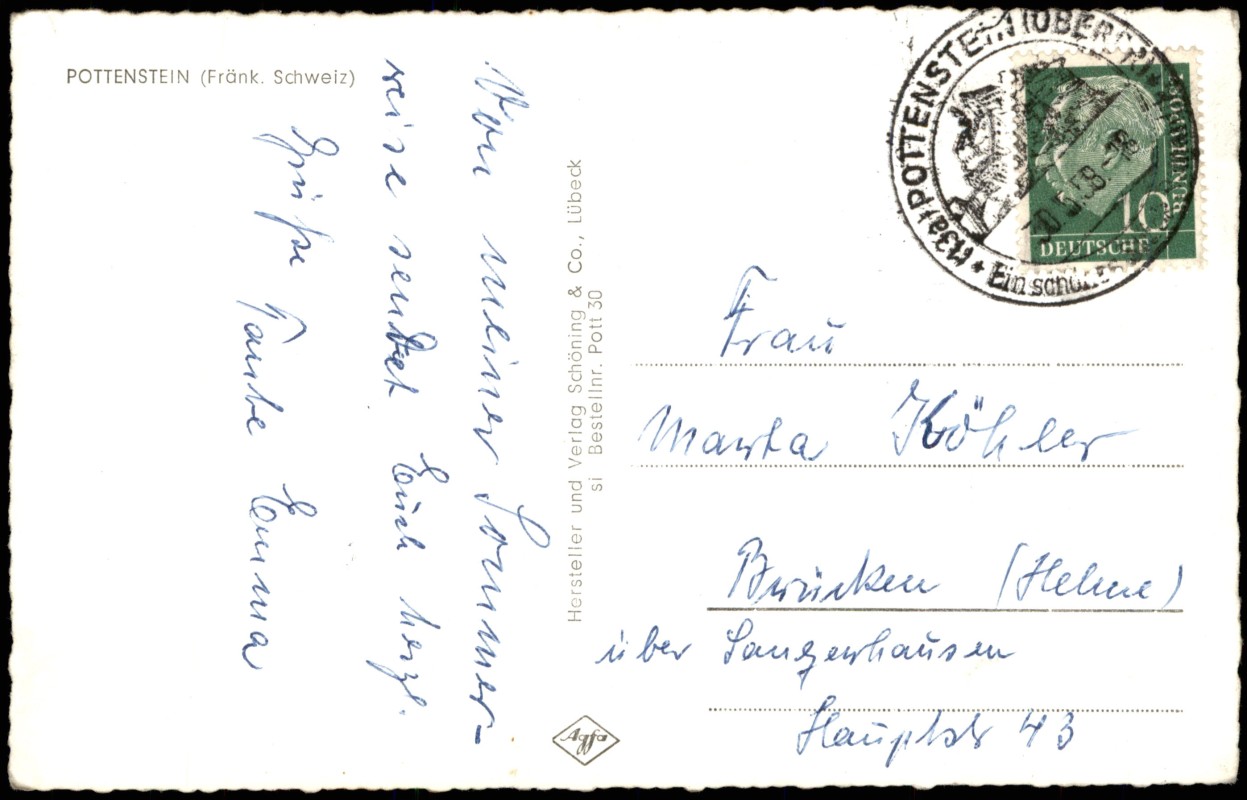 POTTENSTEIN (Fränk. Schweiz)
Von meiner Sommer-
reise sendet Euch herzl.
Grüße Tante Emma
Hersteller und Verlag Schöning & Co., Lübeck
si Bestellnr. Pott 30
Agfa
(13a) POTTENSTEIN (OBERFR
Ein schöner
30.5.58.
BUNDESPOST
10
DEUTSCHE
Frau
Marta Köhler
Brücken (Helme)
über Sangerhausen
Hauptstr 43